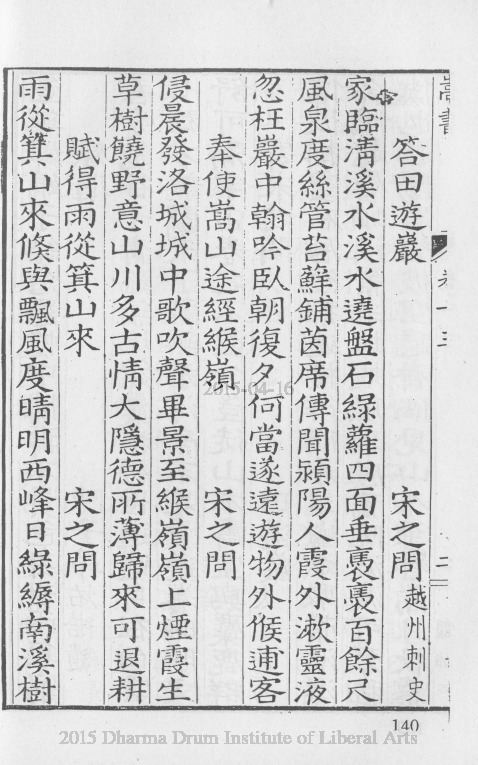 嵩書
卷十三
二
答田遊巖
宋之問越州刺史
家臨清溪水溪水遶盤石綠蘿四面垂褭褭百餘尺
風泉度絲管苔蘚鋪茵席傳聞潁陽人霞外漱靈液
忽枉巖中翰吟臥朝復夕何當遂遠遊物外候逋客
奉使嵩山途經緱嶺
宋之問
侵晨發洛城城中歌吹聲畢景至緱嶺嶺上煙霞生
草樹饒野意山川多古情大隱德所薄歸來可退耕
賦得雨從箕山來
宋之問
雨從箕山來倐與飄風度晴明西峰日綠縟南溪樹
2015-04-16
140
2015 Dharma Drum Institute of Liberal Arts